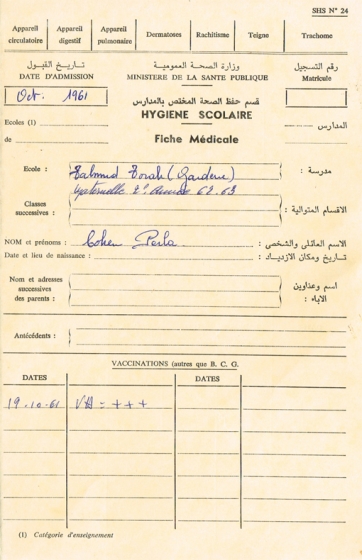 SHS N° 24
Appareil circulatoire
Appareil digestif
Appareil pulmonaire
Dermatoses
Rachitisme
Teigne
Trachome
تاريخ القبول
DATE D'ADMISSION
Oct. 1961
وزارة الصحة العمومية
MINISTERE DE LA SANTE PUBLIQUE
قسم حفظ الصحة المختص بالمدارس
HYGIENE SCOLAIRE
Fiche Médicale
رقم التسجيل
Matricule
Ecoles (1)
de
المدارس
Ecole :
Talmud Torah (Garderie)
مدرسة :
Classes successives :
Maternelle 2e Année 62.63
الاقسام المتوالية :
NOM et prénoms : Cohen Perla
الاسم العائلي والشخصي :
Date et lieu de naissance :
تاريخ ومكان الازدياد :
Nom et adresses successives des parents :
اسم وعناوين الاباء :
Antécédents :
VACCINATIONS (autres que B. C. G.
DATES
DATES
19.10.61
= + + +
(1) Catégorie d'enseignement